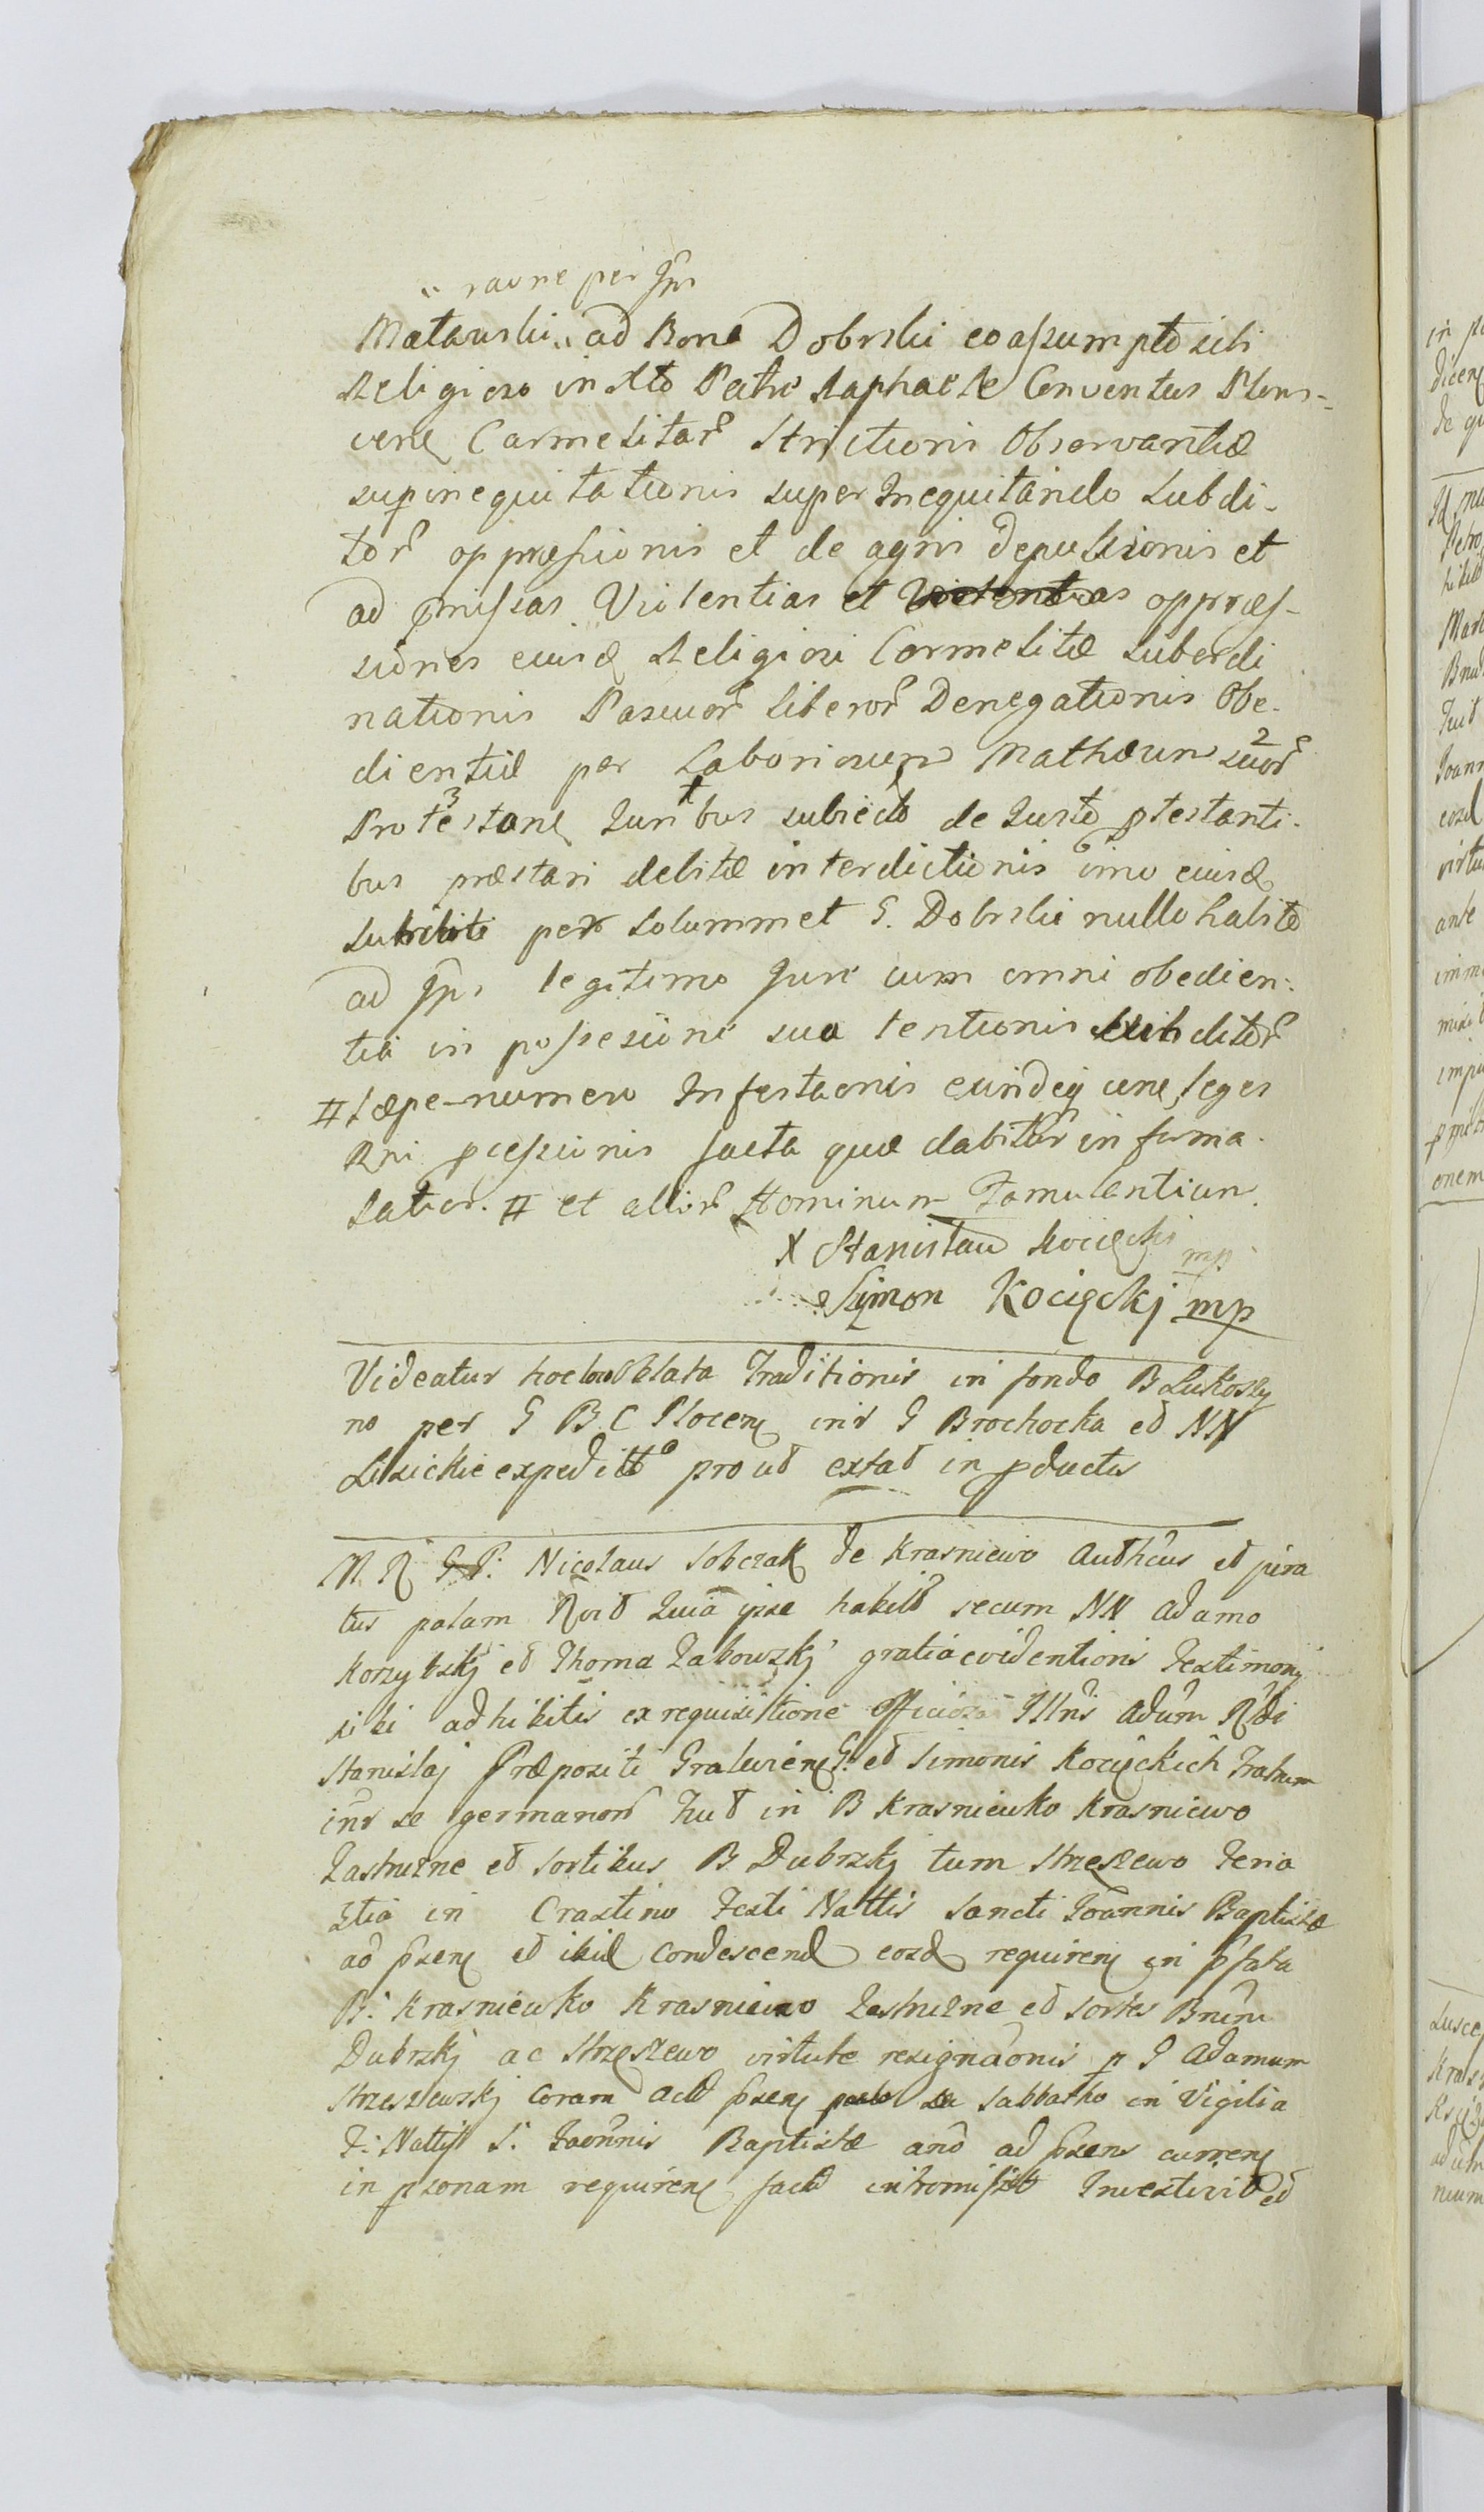 ,, raone per Ips
Matauski ,, ad Bona Dobrski coassumpto sibi
Religioso in Xto Patre Raphaele Conventus Plons-
cen Carmelitar Strictioris Observantiæ
supinequitationis super Inequitando Subdi-
tor oppræssionis et de agris depulsionis et
ad pmissas Violentias et Violentias oppræs-
siones eiusd Religiosi Carmelitæ subordi
nationis Pascuor liberor Denegationis Obe-
dientiæ per Laboriosum Mathæum 2 suor
3 Protestan Iuribus subiecto de Iusto ptestanti-
bus præstari debitæ interdictionis imo eiusd
subditi per solummet G. Dobrski nullo habito
ad Ips legitimo Jure cum omni obedien-
tia in possesione sua tentionis subditor
# sæpe-numero Infestaonis eundeq cne leges
Rni pcessionis facta quæ dabitur in forma
latior. # et alior Hominum Famulantium
X Stanisław Kocięcki mp
Szymon Kocięckj mp
Videatur hoc loco Oblata Traditionis in fondo B Lukoszy
no per G B. C Plocen inr G Brochocka et NN
Lisickie expeditto prout extat in pductis
M. R G. P. Nicolaus Sobczak de Krasniewo Authcus et jura
tus palam Rvit Quia ipse habitt secum NN Adamo
Korzybskj et Thoma Zabowskj gratia evidentioris Testimonj
sibi adhibitis ex requisitione Officiosa Illris Adum Rdi
Stanislaj Præpositi Gralevien G. et Simonis Kocięckich Fratrum
inr se germanor Fuit in B Krasniewko Krasniewo
Zastruzne et sortibus B Dubrskj tum Strzeszewo Feria
2tia in Crastino Festi Nattis Sancti Joannis Baptistæ
ad psen et ibid condescend eosd requiren in pfata
B. Krasniewko Krasniewo Zastruzne et sortes Bnrm
Dubrskj ac Strzeszewo virtute resignaonis p G Adamum
Strzeszewskj coram Actt psen Sabbatho in Vigilia
F. Nattis S. Joannis Baptistæ ano ad psens curren
in psonam requiren factt intromisit Investivit et